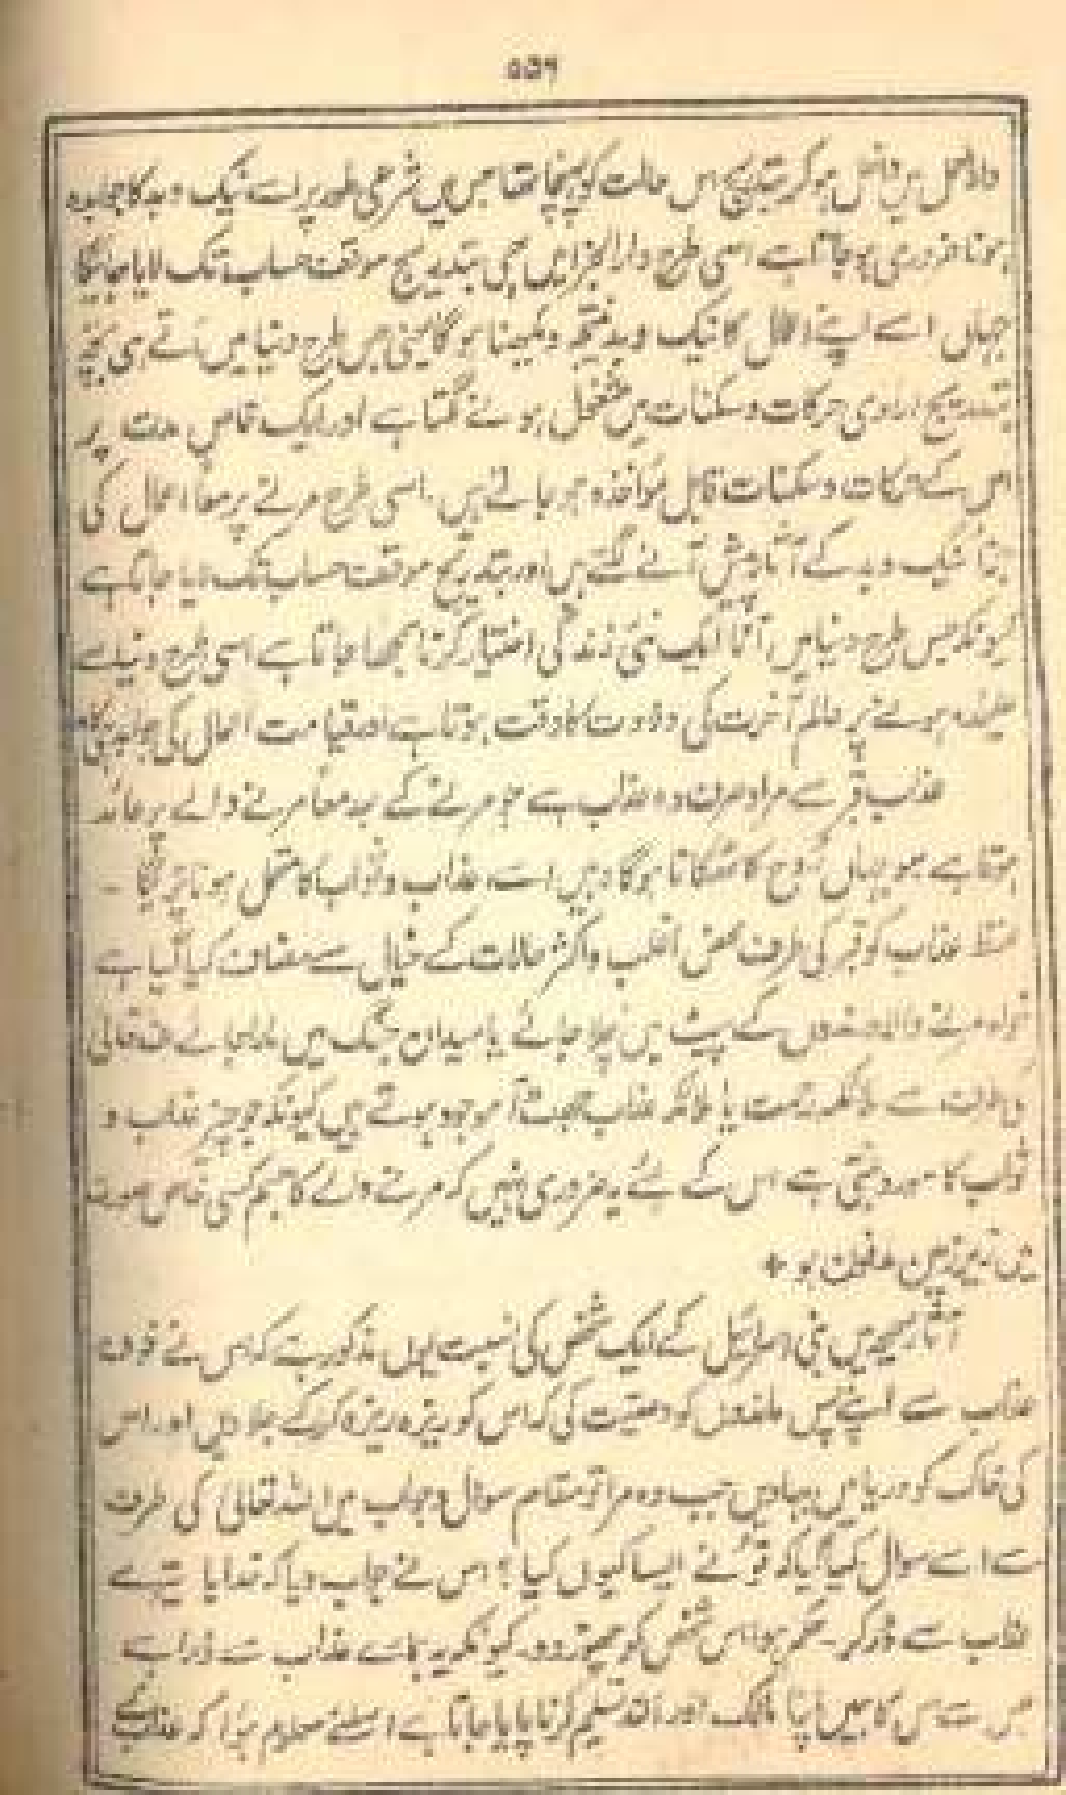 ۵۵۶
دارالعمل میں داخل ہو کر بتدریج اس حالت کو پہنچا تھا جس میں شرعی طور پر اسے نیک و بد کا جوابدہ
ہونا ضروری ہو جاتا ہے اسی طرح دارالجزا میں بھی بتدریج موقف حساب تک لایا جائیگا
جہاں اسے اپنے اعمال کا نیک و بد نتیجہ دیکھنا ہوگا یعنی جس طرح دنیا میں آتے ہی بچہ
بتدریج ارادی حرکات و سکنات میں مشغول ہونے لگتا ہے اور ایک خاص حد پر
اس کے حرکات و سکنات قابل مواخذہ ہو جاتے ہیں۔ اسی طرح مرنے پر معاً اعمال کی
نیک و بد کے آثار پیش آنے لگتے ہیں اور بتدریج موقف حساب تک لایا جاتا ہے
کیونکہ جس طرح دنیا میں آنا ایک نئی زندگی اختیار کرنا سمجھا جاتا ہے اسی طرح دنیا سے
علیحدہ ہونے پر عالم آخرت کی ولادت کا وقت ہوتا ہے اور قیامت اعمال کی جوابدہی کا
عذاب قبر سے مراد صرف وہ عذاب ہے جو مرنے کے بعد معاً مرنے والے پر عائد
ہوتا ہے جو جہاں روح کا ٹھکانا ہوگا وہیں اسے عذاب و ثواب کا متحمل ہونا پڑیگا ۔
لفظ عذاب کو قبر کی طرف محض اغلب و اکثر حالات کے خیال سے مضاف کیا گیا ہے
خواہ مرنے والا درندوں کے پیٹ میں چلا جائے یا میدان جنگ میں مارا جائے اللہ تعالیٰ
کی طرف سے ملائکہ رحمت یا ملائکہ عذاب جھٹ آ موجود ہوتے ہیں کیونکہ جو چیز عذاب و
ثواب کا مورد بنتی ہے اس کے لئے یہ ضروری نہیں کہ مرنے والے کا جسم کسی خاص صورت
میں زیر زمین مدفون ہو +
آثار صحیحہ میں بنی اسرائیل کے ایک شخص کی نسبت یوں مذکور ہے کہ اس نے خوف
عذاب سے اپنے پس ماندوں کو وصیت کی کہ اس کو ریزہ ریزہ کرکے جلا دیں اور اس
کی خاک کو دریا میں بہا دیں جب وہ مرا تو مقام سوال و جواب میں اللہ تعالیٰ کی طرف
سے اسے سوال کیا گیا کہ تو نے ایسا کیوں کیا؟ اس نے جواب دیا کہ خدایا تیرے
عذاب سے ڈر کر۔ حکم ہوا اس شخص کو چھوڑ دو۔ کیونکہ یہ ہمارے عذاب سے ڈرا ہے
جس سے اس کا ہمیں اپنا مالک اور تسلیم کرنا پایا جاتا ہے اسلئے معلوم ہوا کہ عذاب کے